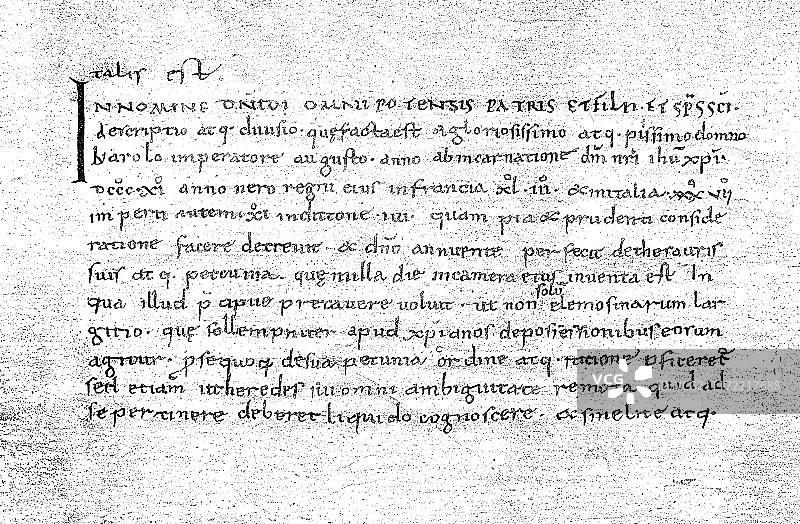 talis est.
IN NOMINE DNI DI OMNIPOTENSIS PATRIS ET FILII ET SPS SCI.
descriptio atq. diuisio. quę facta est a gloriosissimo atq. piissimo domno
karolo imperatore augusto. anno ab incarnatione dni nri ihu xpi.
DCCC.XI anno uero regni eius in francia XL.III. & in italia. XXXVII
imperii autem. XI indictione .IIII. quam pia & prudenti conside
ratione facere decreuit. & dno annuente perfecit de thesauris
suis atq. pecunia. quę in illa die in camera eius inuenta est In
qua illud p cipue precauere uoluit. ut non solu elemosinarum lar
gitio. quę sollempniter apud xpianos de possessionibus eorum
agitur. p se quoq. de sua pecunia ordine atq. ratione pficeret
sed etiam ut heredes sui omni ambiguitate remota quid ad
se pertinere deberet liquido cognoscere. & sine lite atq.
VCG